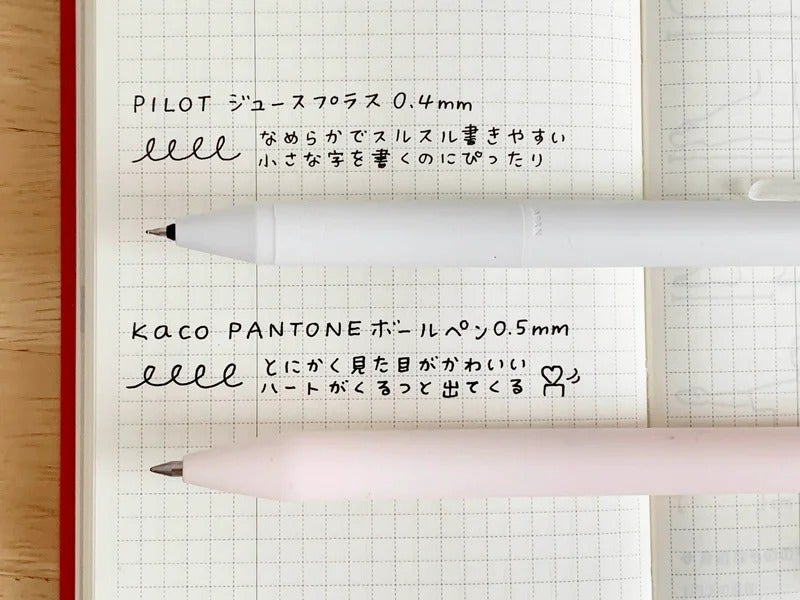 PILOT ジュースプラス 0.4mm
なめらかでスルスル書きやすい
小さな字を書くのにぴったり
Kaco PANTONE ボールペン 0.5mm
とにかく見た目がかわいい
ハートがくるっと出てくる